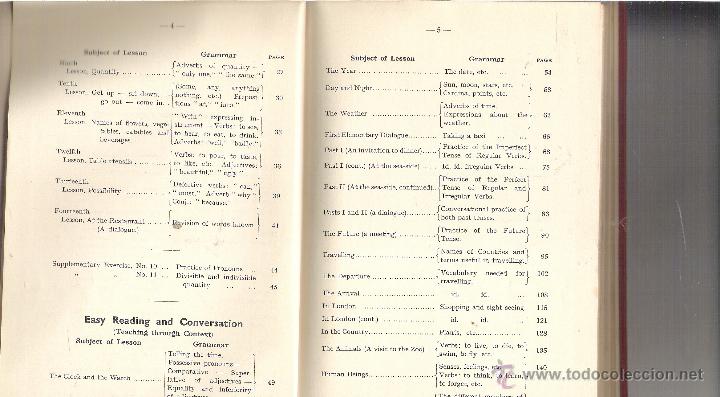 — 4 —
Subject of Lesson Grammar PAGE
Ninth
Lesson, Quantity Adverbs of quantity – " only one," " the same " 27
Tenth
Lesson, Get up — sit down, go out — come in (Some, any, anything nothing, etc.) Prepositions " at," " into " 30
Eleventh
Lesson, Names of flowers, vegetables, eatables and beverages " With " expressing instrument – Verbs: to see, to hear, to eat, to drink. Adverbs " well," " badly."
Twelfth
Lesson, Table utensils Verbs: to pour, to taste, to like, etc. Adjectives: " beautiful," " ugly." 36
Thirteenth
Lesson, Possibility Defective verbs: " can," " must." Adverb " why " Conj.: " because." 39
Fourteenth
Lesson, At the Restaurant (A dialogue) Revision of words known 41
Supplementary Exercise, No. 10 ... Practice of Pronouns ... 44
" " No. 11 ... Divisible and indivisible quantity ... ... 45
Easy Reading and Conversation
(Teaching through Context)
Subject of Lesson Grammar
The Clock and the Watch Telling the time. Possessive pronouns Comparative – Superlative of adjectives — Equality and Inferiority 49
— 5 —
Subject of Lesson Grammar PAGE
The Year The date, etc. ... 54
Day and Night Sun, moon, stars, etc. Cardinal points, etc. 58
The Weather Adverbs of time. Expressions about the weather. 62
First Elementary Dialogue Taking a taxi ... ... 66
Past I (An invitation to dinner) Practice of the Imperfect Tense of Regular Verbs. 68
Past I (cont.) (At the seaside) Id. id. Irregular Verbs 75
Past II (At the seaside, continued) Practice of the Perfect Tense of Regular and Irregular Verbs. 81
Pasts I and II (a dialogue) Conversational practice of both past tenses. 83
The Future (a meeting) Practice of the Future Tense. 90
Travelling Names of Countries and terms useful in travelling. 95
The Departure Vocabulary needed for travelling. 102
The Arrival id. id. ... 108
In London Shopping and sight seeing 115
In London (cont.) id. id. ... 121
In the Country Plants, etc. ... 128
The Animals (A visit to the Zoo) Verbs: to live, to die, to swim, to fly, etc. 135
Human Beings Senses, feelings, etc. Verbs: to think, to learn, to forget, etc. 140
The different members of
todocoleccion
www.todocoleccion.net